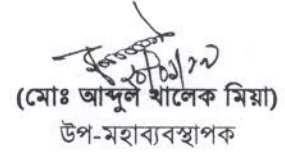 (মোঃ আব্দুল খালেক মিয়া)
উপ-মহাব্যবস্থাপক